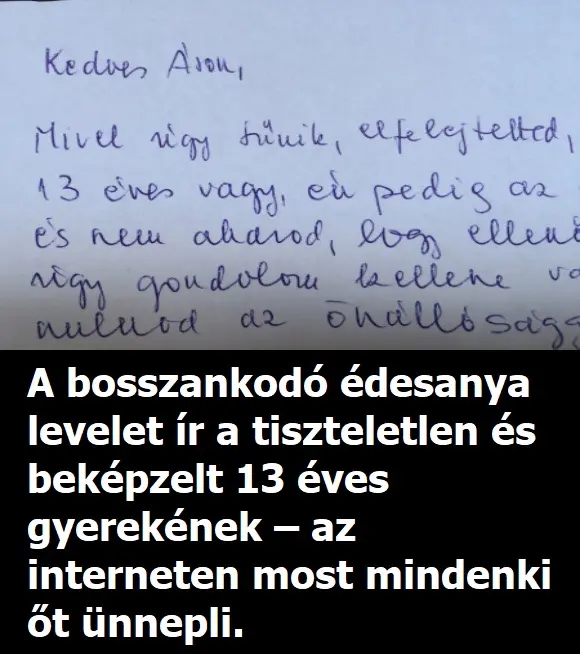 Kedves Áron,
Mivel úgy tűnik, elfelejtetted,
13 éves vagy, én pedig az
és nem akarod, hogy ellenő
úgy gondolom kellene va
nulnod az önállóságg
A bosszankodó édesanya
levelet ír a tiszteletlen és
beképzelt 13 éves
gyerekének – az
interneten most mindenki
őt ünnepli.